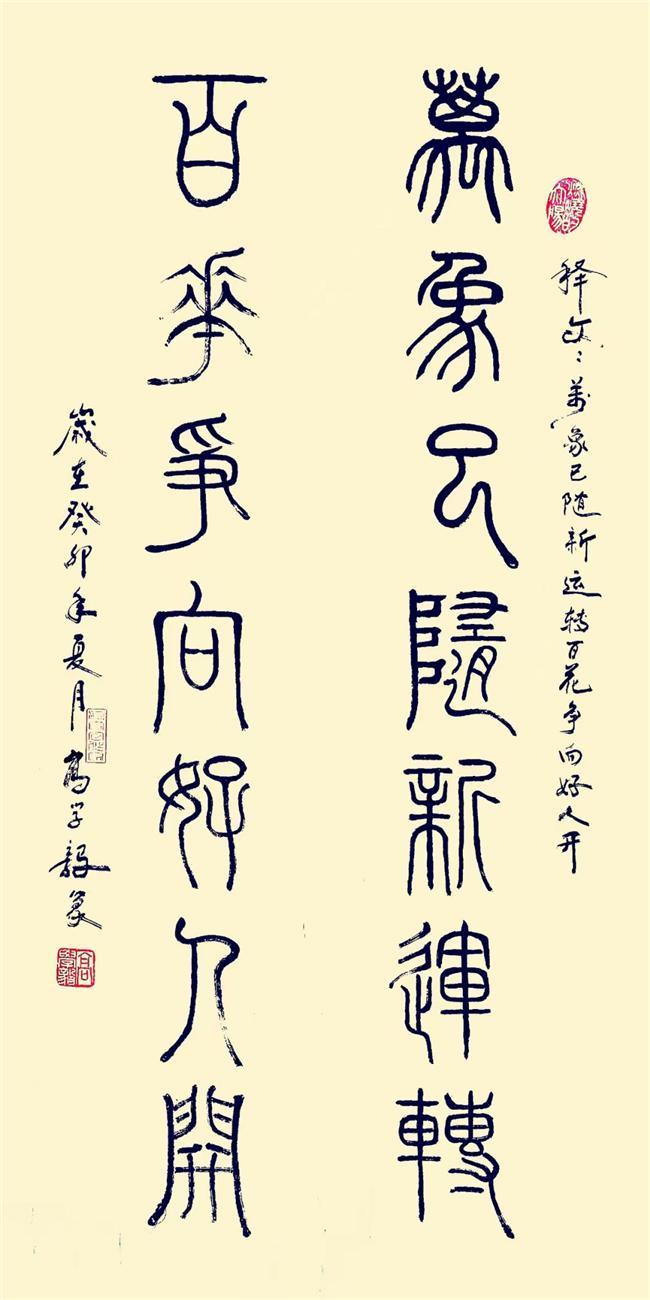 释文：萬象已随新运转百花争向好人开
萬象已隨新運轉
百華爭向好人開
歲在癸卯年夏月高学毅篆
高學毅